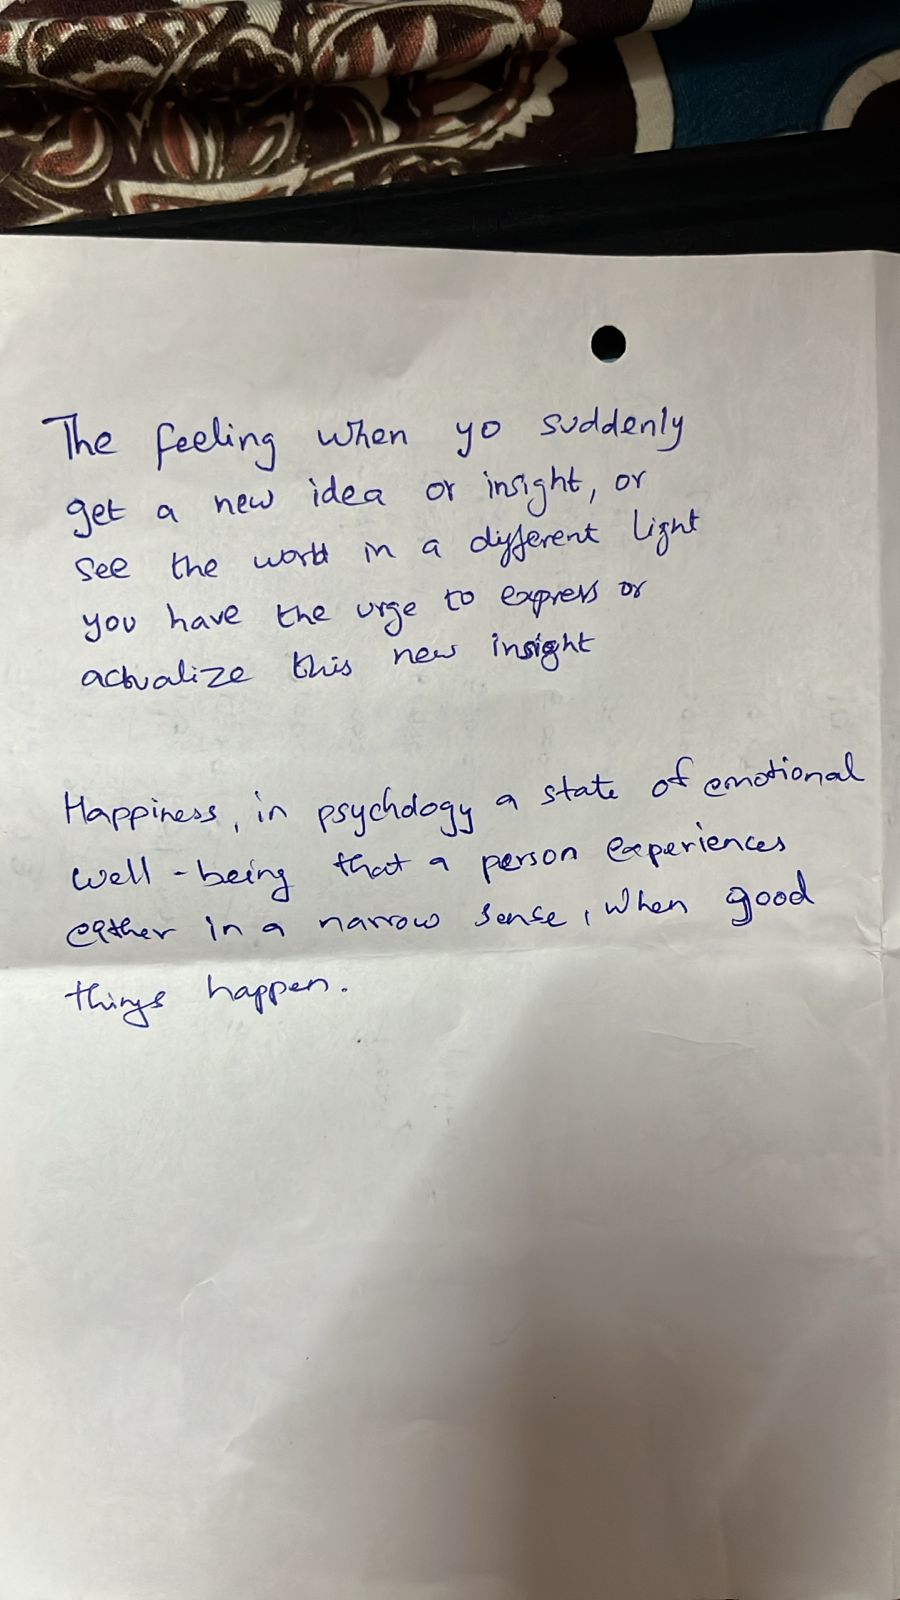 The feeling when yo suddenly
get a new idea or insight, or
see the world in a different light
you have the urge to express or
actualize this new insight
Happiness, in psychology a state of emotional
well-being that a person experiences
either in a narrow sense, when good
things happen.